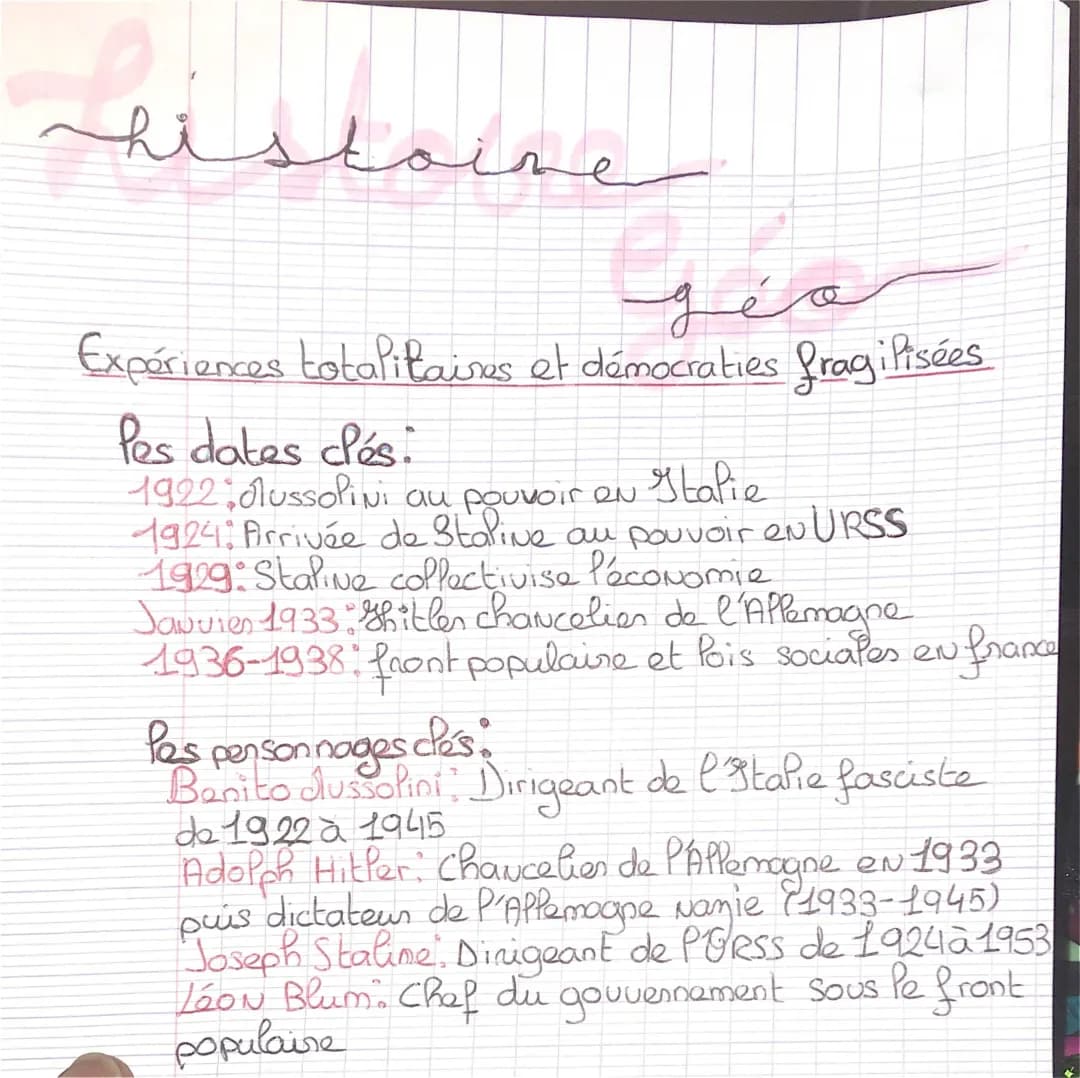 histoire
géo
Expériences totalitaires et démocraties fragilisées
les dates clés:
1922: Mussolini au pouvoir en Italie
1924: Arrivée de Staline au pouvoir en URSS
1929: Staline collectivise l'économie
Janvier 1933: Hitler chancelier de l'Allemagne
1936-1938: front populaire et lois sociales en france
les personnages clés:
Benito Mussolini: Dirigeant de l'Italie fasciste
de 1922 à 1945
Adolph Hitler: Chancelier de l'Allemagne en 1933
puis dictateur de l'Allemagne nazie (1933-1945)
Joseph Staline: Dirigeant de l'URSS de 1924 à 1953
Léon Blum: Chef du gouvernement sous le front
populaire